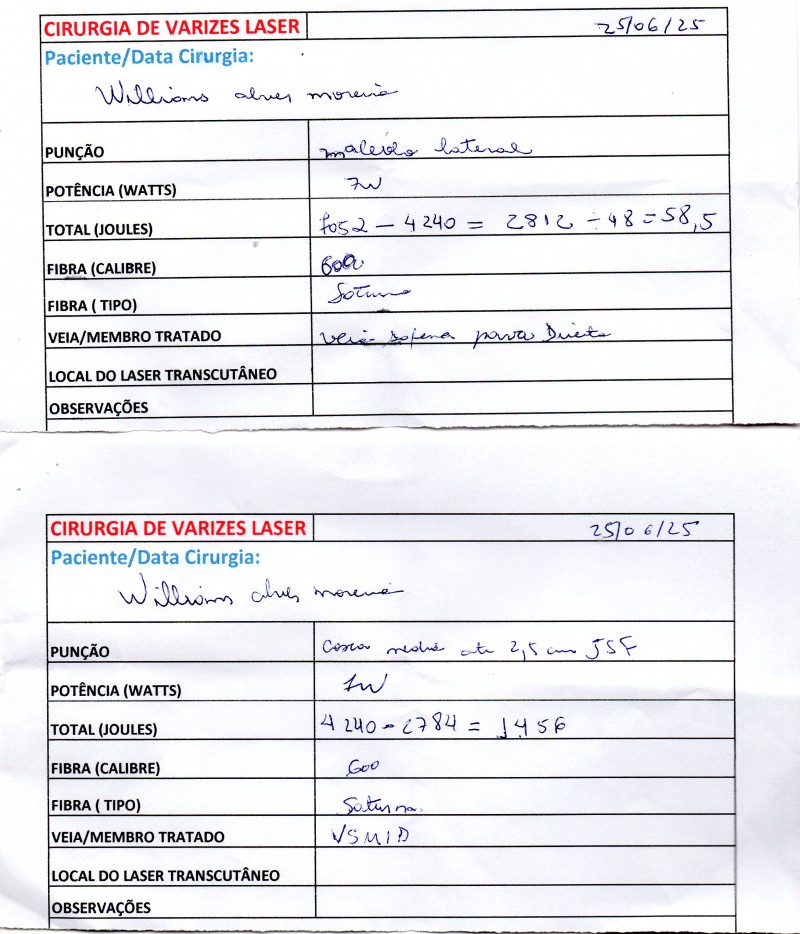 CIRURGIA DE VARIZES LASER 25/06/25
Paciente/Data Cirurgia:
Willians alves moreira
PUNÇÃO maléolo lateral
POTÊNCIA (WATTS) 7W
TOTAL (JOULES) 7052 - 4240 = 2812 ÷ 48 = 58,5
FIBRA (CALIBRE) 600
FIBRA ( TIPO) Saturno
VEIA/MEMBRO TRATADO veia safena parva Direita
LOCAL DO LASER TRANSCUTÂNEO
OBSERVAÇÕES
CIRURGIA DE VARIZES LASER 25/06/25
Paciente/Data Cirurgia:
Willians alves moreira
PUNÇÃO Coxa media ate 2,5 cm JSF
POTÊNCIA (WATTS) 7W
TOTAL (JOULES) 4240 - 2784 = 1456
FIBRA (CALIBRE) 600
FIBRA ( TIPO) Saturno
VEIA/MEMBRO TRATADO VSMID
LOCAL DO LASER TRANSCUTÂNEO
OBSERVAÇÕES